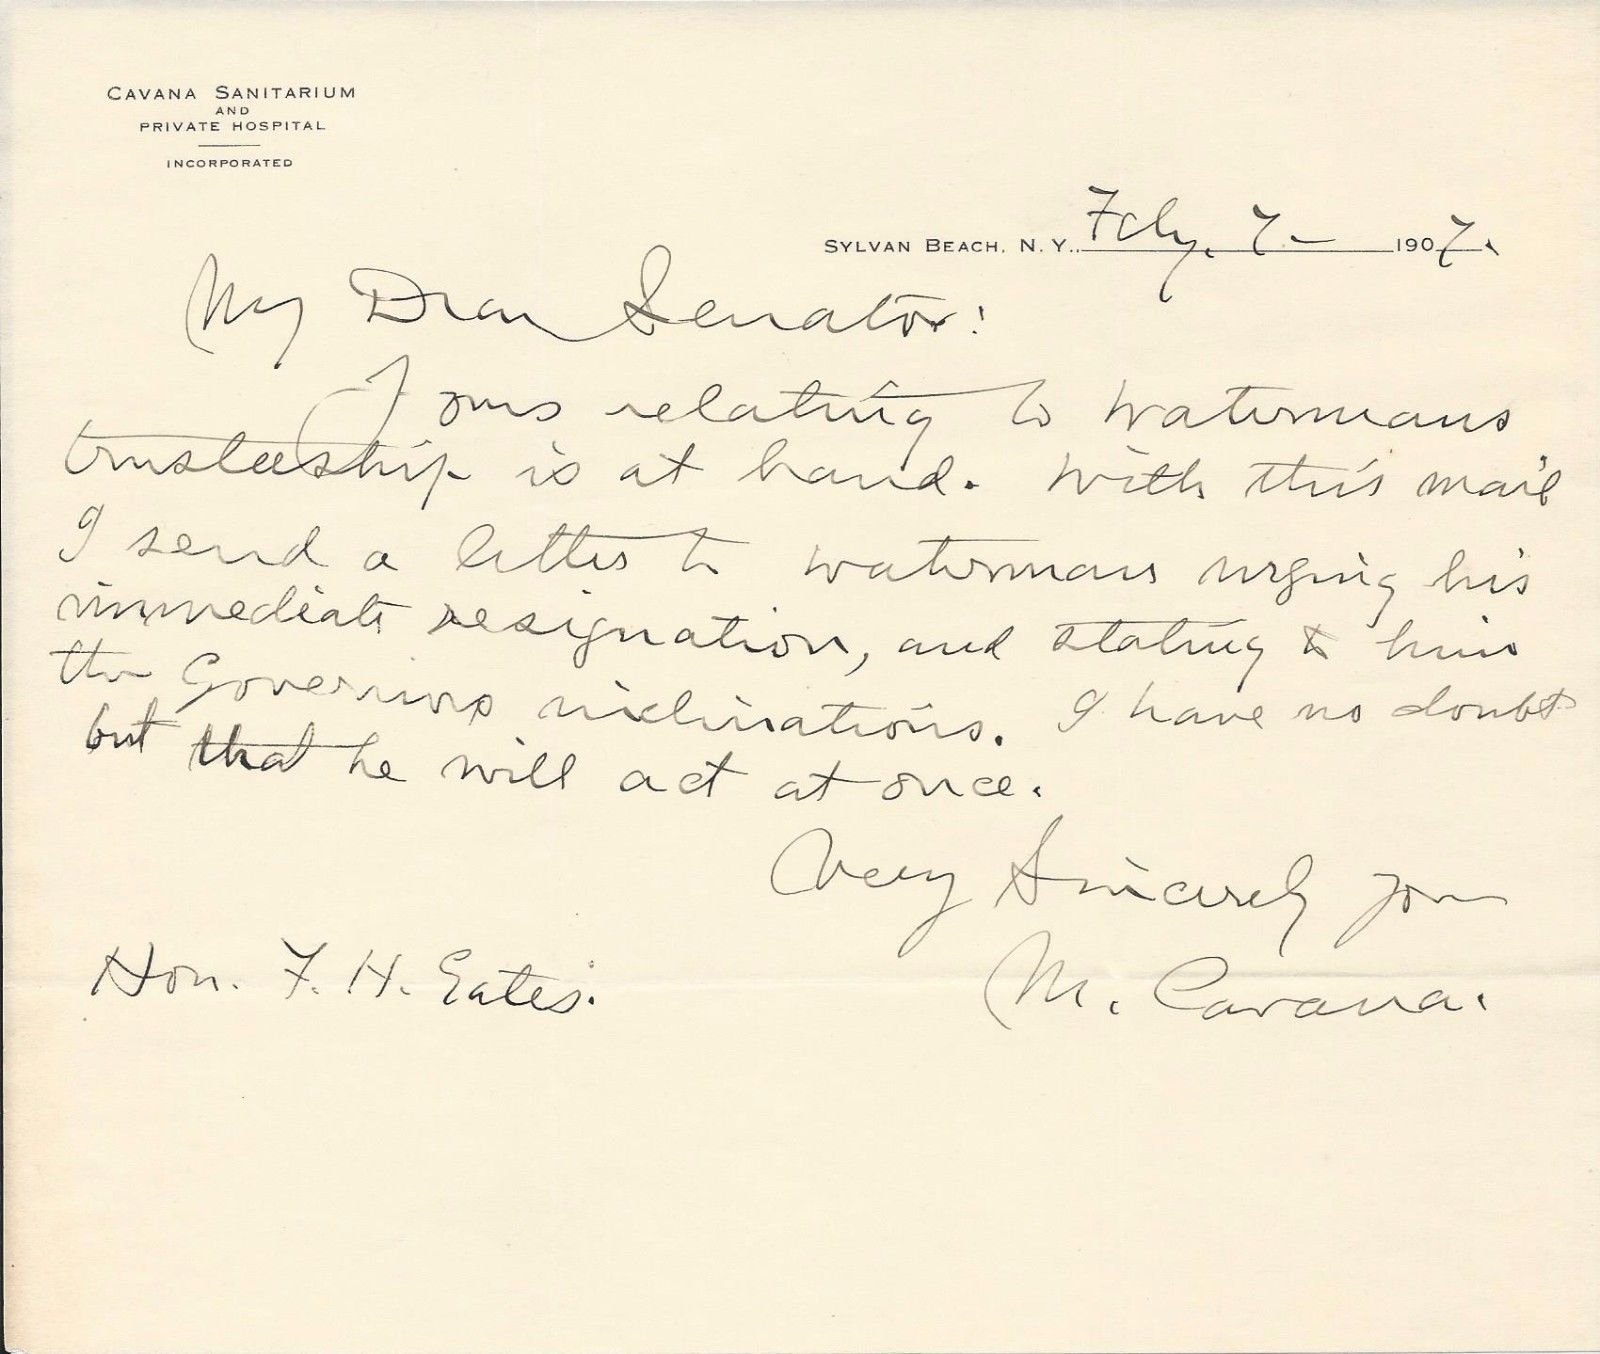 CAVANA SANITARIUM
AND
PRIVATE HOSPITAL
INCORPORATED
SYLVAN BEACH, N. Y. Feby. 7 - 1907.
My Dear Senator:
Yours relating to Watermans
trusteeship is at hand. With this mail
I send a letter to Waterman urging his
immediate resignation, and stating to him
the Governors inclinations. I have no doubt
but that he will act at once.
Very Sincerely yours
M. Cavana.
Hon. F. H. Gates.